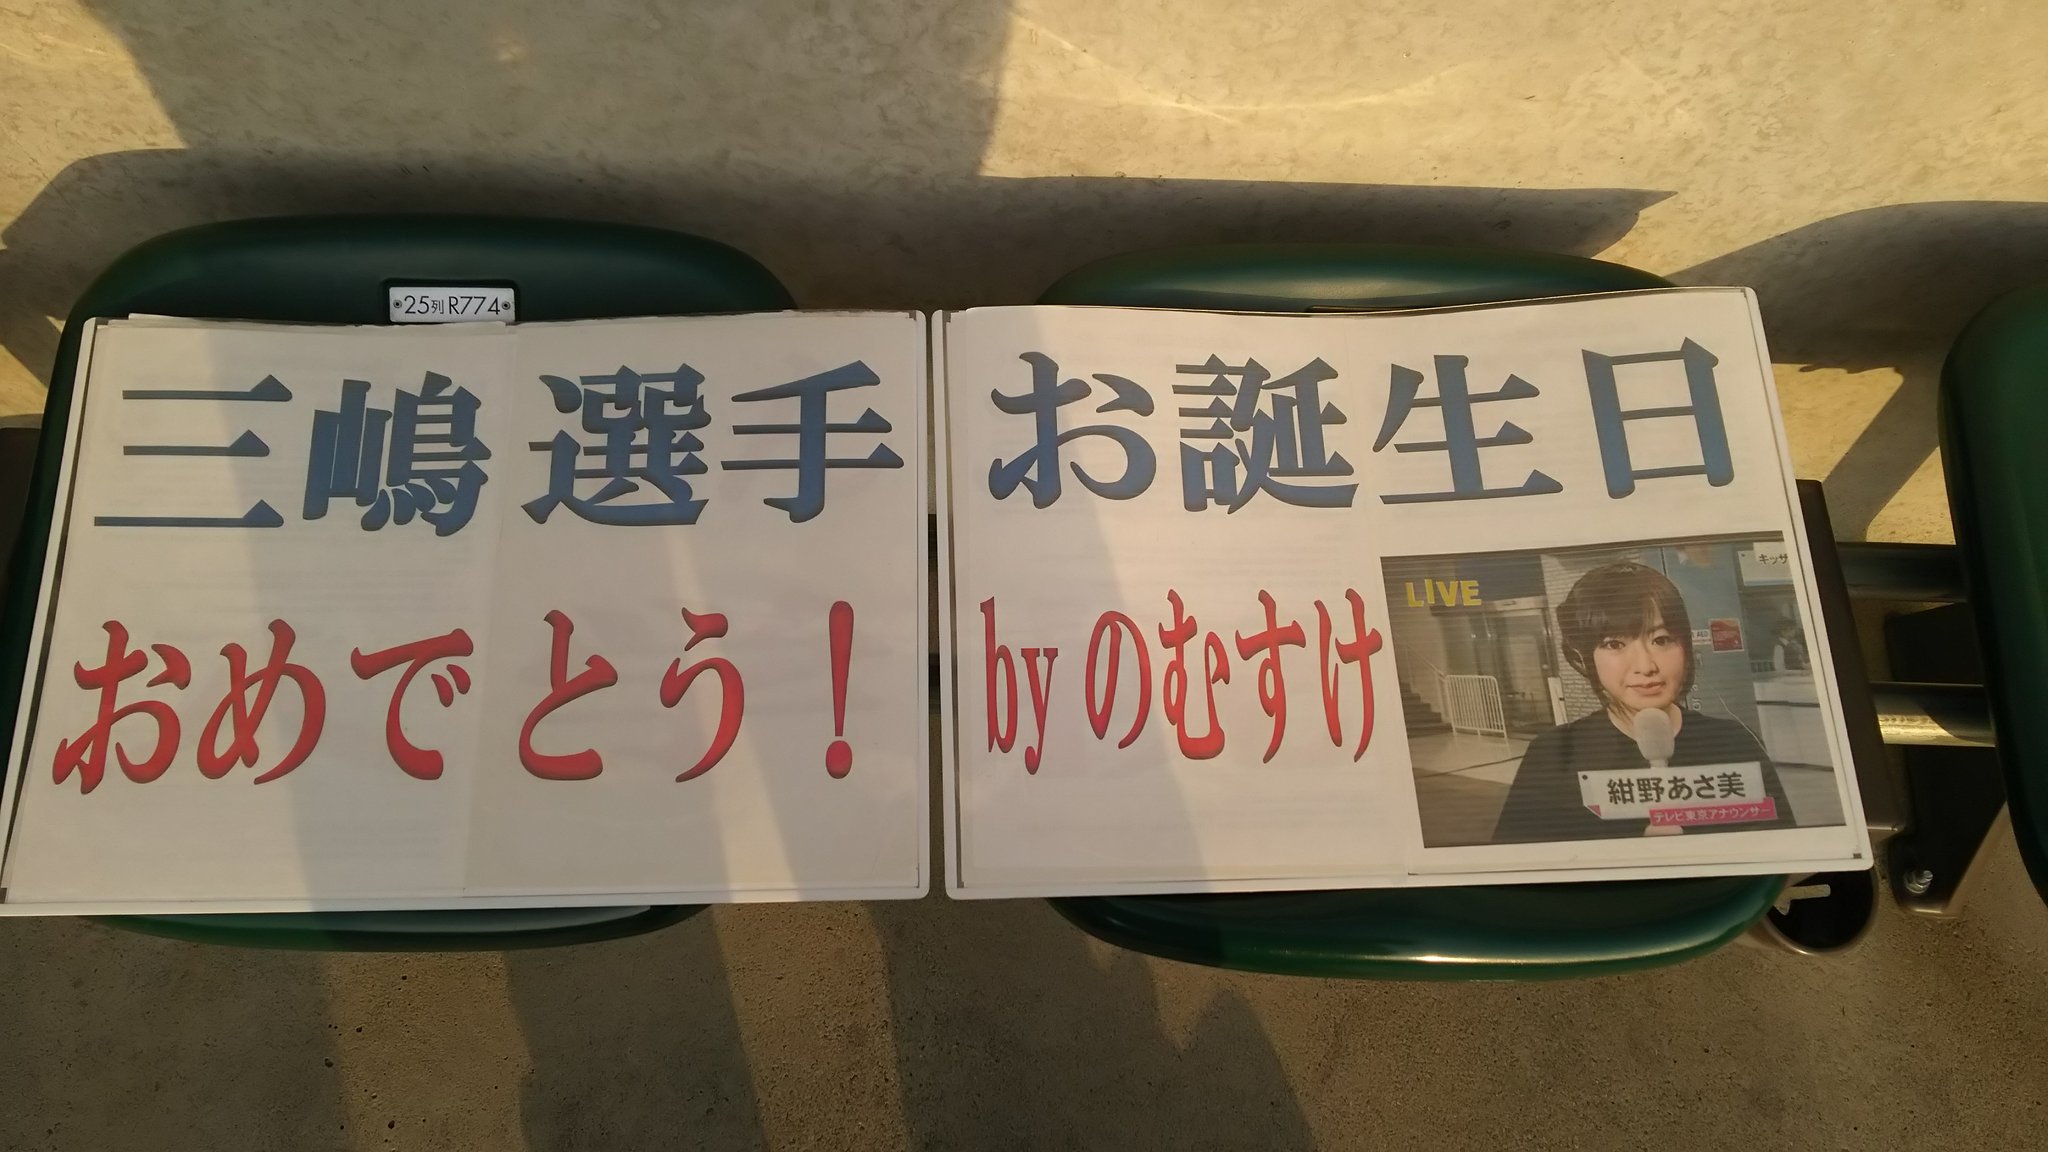 25列 R774
三嶋選手
おめでとう！
お誕生日
by のむすけ
LIVE
キッザ
AED
紺野あさ美
テレビ東京アナウンサー